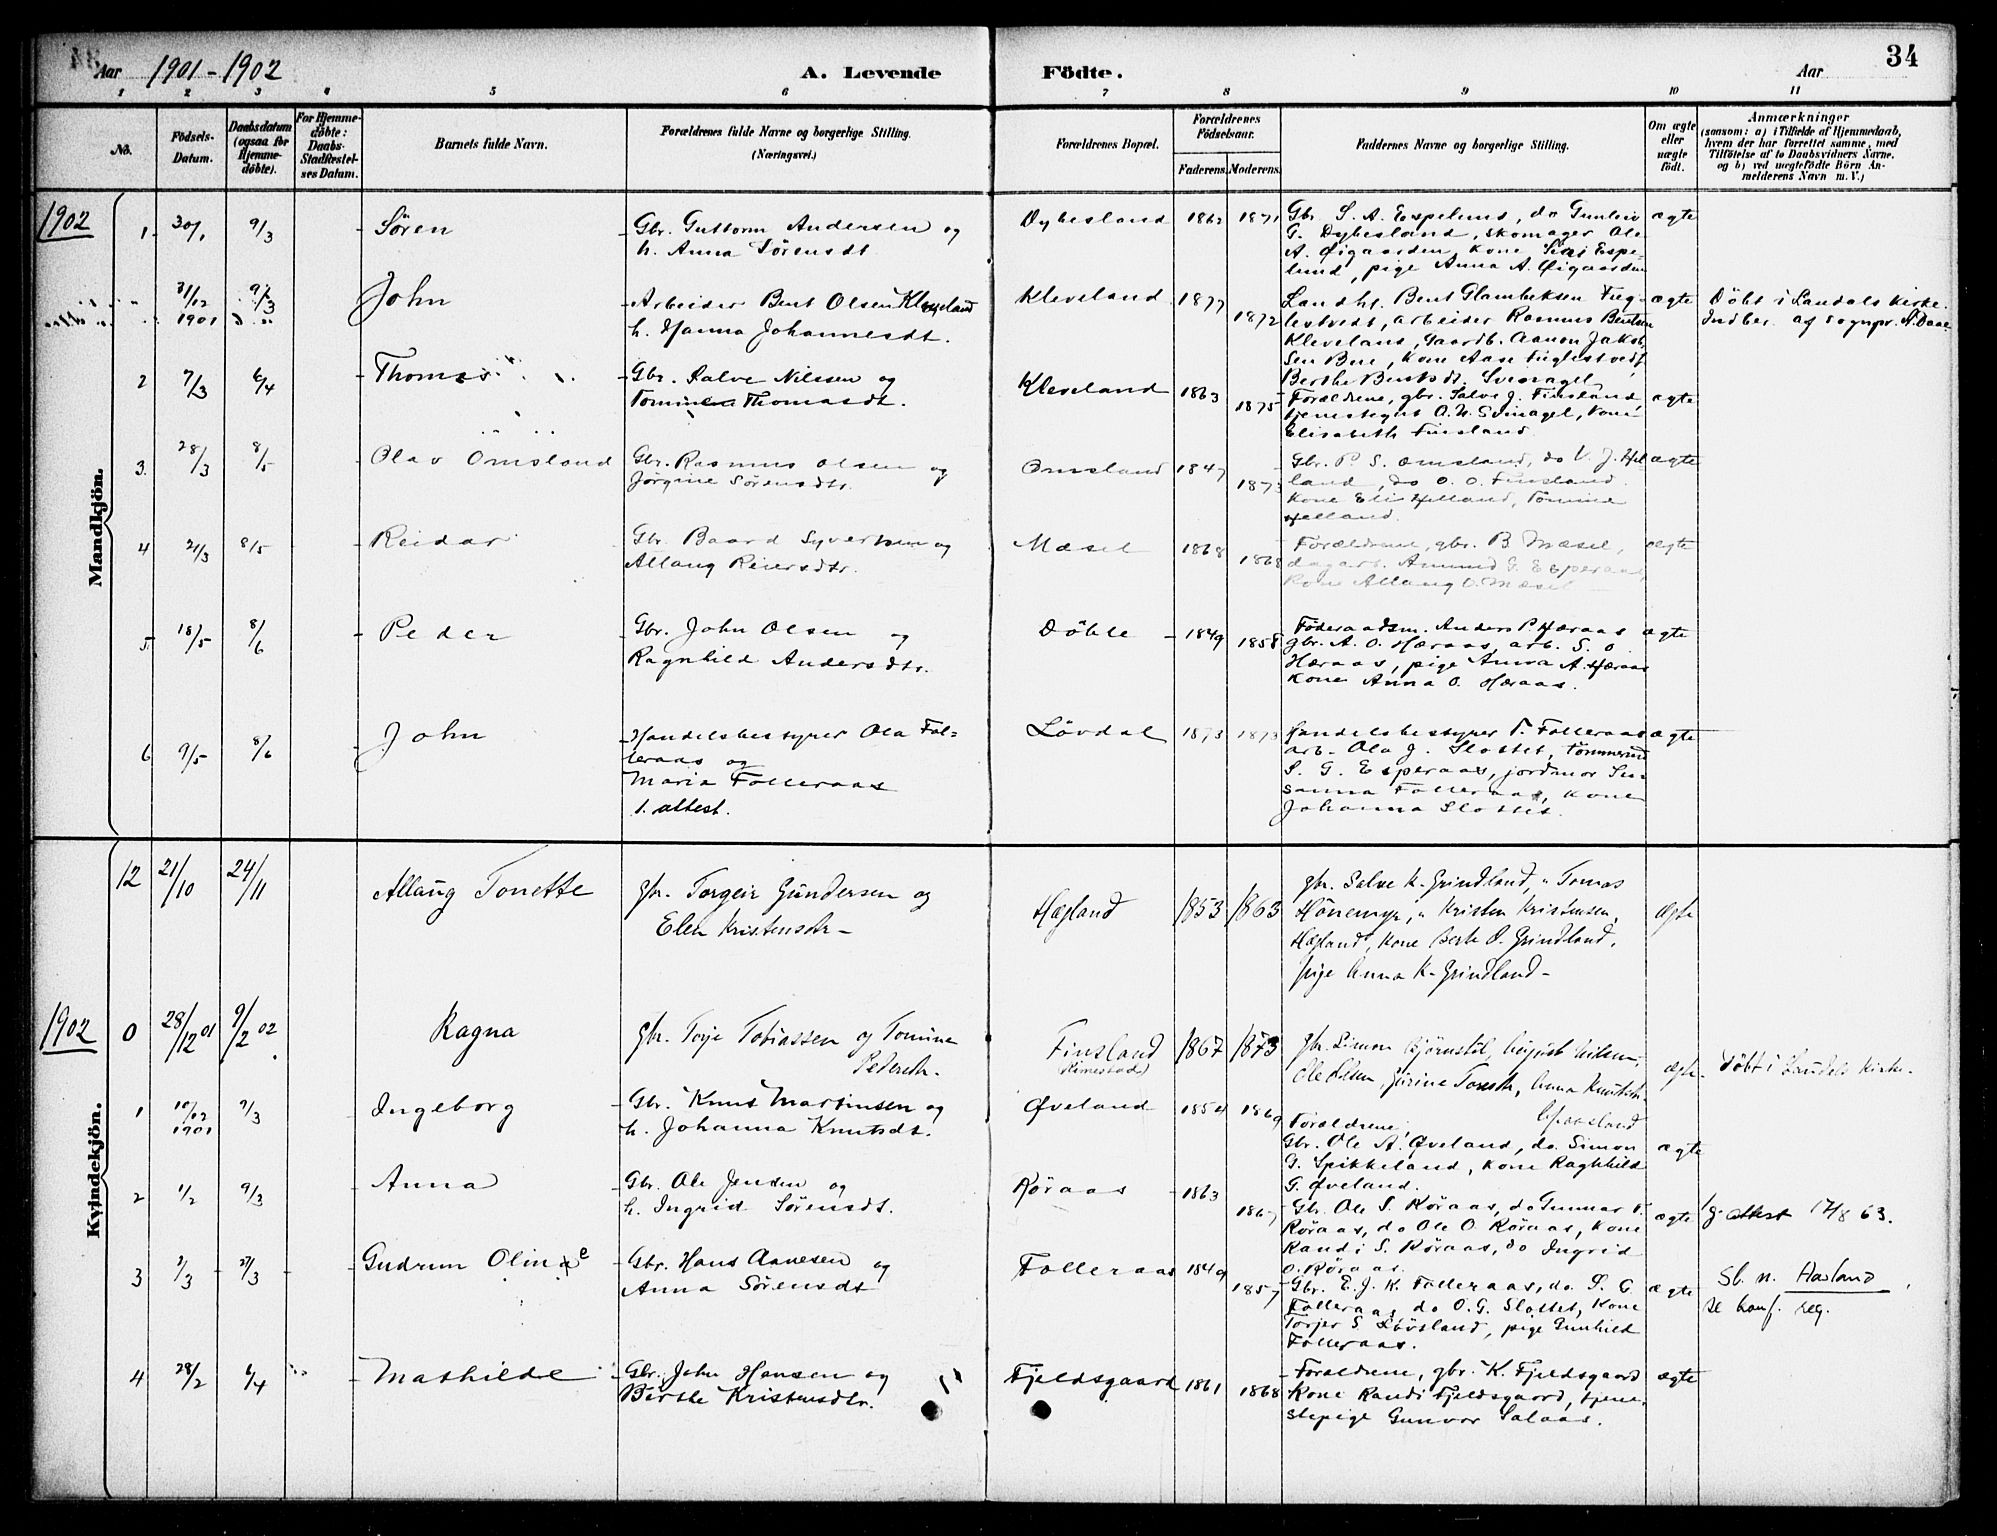 34
Aar 1901-1902
A. Levende
Födte.
Aar
1 2 3 4 5 6 7 8 9 10 11
No.
Födsels-
Datum.
Daabsdatum
(ogsaa for
Hjemme-
döbte).
For Hjemme-
döbte:
Daabs-
Stadfæstel-
ses Datum.
Barnets fulde Navn.
Forældrenes fulde Navne og borgerlige Stilling.
(Næringsvei.)
Forældrenes Bopæl.
Forældrenes
Födselsaar.
Faderens. Moderens.
Faddernes Navne og borgerlige Stilling.
Om ægte
eller
uægte
födt.
Anmærkninger
(saasom: a) i Tilfælde af Hjemmedaab,
hvem der har forrettet samme, med
Tilföielse af to Daabsvidners Navne.
og b) ved uægtefödte Börn An-
melderens Navn m. V.)
Mandkjön.
1902
1. 30/1 9/3
Søren
Gbr. Guttorm Andersen og
h. Anna Sörensdt.
Dybesland 1862 1871
Gbr. S. A. Espelund, do Gunleiv
G. Dybesland, skomager Ole
A. Øigaarden, kone Siri Espe-
lund, pige Anna A. Øigaarden
ægte
31/12 1901 9/3
John
Arbeider Bent Olsen Kleveland
h. Hanna Johannesdt.
Kleveland 1877 1872
Landhl. Bent Glambeksen Fug-
lestvedt, arbeider Rasmus Bentsen
Kleveland, Gaardb. Aanon Jakob
sen Bue, Kone Aase Fuglestvedt
Berthe Bentsdt. Svinagel
ægte
Döbt i Laudals Kirke.
Indber. af sognpr. A. Daae
2 7/3 6/4
Thomas
Gbr. Salve Nilssen og
Tomine Thomasdt.
Kleveland 1863 1875
Forældrene, gbr. Salve J. Finsland,
tjenestegut O. N. Svinagel, kone
Elisabeth Finsland
ægte
3. 28/3 8/5
Olav Omsland
Gbr. Rasmus Olsen og
Jörgine Sörensdtr.
Omsland 1847 1873
Gbr. P. S. Omsland, do V. J. Hel
land, do O. O. Finsland.
Kone Eli Helland, Tomine
Helland.
ægte
4 21/3 8/5
Reidar
Gbr. Baard Syvertsen og
Allaug Reiersdtr.
Mæsel 1868 1868
Forældrene, gbr. B. Mæsel,
dagarb. Amund G. Esperaas,
Kone Allaug O. Mæsel
ægte
5. 18/5 8/6
Peder
Gbr. John Olsen og
Ragnhild Andersdtr.
Döble 1849 1858
Föderaadsm. Anders P. Hæraas
gbr. A. O. Hæraas, arb. S. O.
Hæraas, pige Anna A. Hæraas
Kone Anna O. Hæraas.
ægte
6 9/5 8/6
John
Handelsbestyrer Ola Fol-
leraas og
Maria Folleraas
1. attest.
Lövdal 1873 1873
Handelsbestyrer T. Folleraas
arb. Ola J. Slottet, tömmermd
S. G. Esperaas, jordmor Su-
sanna Folleraas, Kone
Johanna Slottet.
ægte
Kvindekjön.
12 21/10 24/11
Allaug Tonette
gbr. Torgeir Gundersen og
Elen Kristensdtr -
Hægland 1853 1863
gbr. Salve K. Grindland, " Tomas
Hönemyr, " Kristen Kristensen,
Hægland, Kone Berte O. Grindland,
pige Anna K. Grindland -
ægte
1902
0 28/12 01 9/2 02
Ragna
gbr. Terje Tobiassen og Tomine
Pedersdtr.
Finsland
(Kimestad)
1867 1873
gbr. Simon Bjørnstøl, August Nilsen,
Ole Olsen, Gurine Tomine, Anna Knutsdtr.
ægte
Döbt i Laudals Kirke.
1 10/12 1901 9/3
Ingeborg
Gbr. Knut Martinsen og
h. Johanna Knutsdt.
Øveland 1854 1869
Forældrene,
Gbr. Ole A. Øveland, do. Simon
G. Spikkeland, kone Raghhild
G. Øveland.
ægte
2 1/2 9/3
Anna
Gbr. Ole Jensen og
h. Ingrid Sörensdt.
Röraas 1863 1867
Gbr. Ole S. Röraas, do Gunnar T.
Röraas, do Ole O. Röraas, Kone
Randi S. Röraas, do Ingrid
O. Röraas.
ægte
attest 17/8 63.
3 2/3 27/3
Gudrun Oline
Gbr. Hans Aanesen og
Anna Sörensdt
Folleraas 1849 1857
Gbr. E. J. K. Folleraas, do. S. G
Folleraas, do O. G. Slottet, Kone
Torjer S. Lövsland, pige Gunhild
Folleraas.
ægte
Sl. n. Aasland
se konf. reg.
4 28/2 6/4
Mathilde
Gbr. John Hansen og
Berthe Kristensdtr.
Fjeldsgaard 1861 1868
Forældrene, gbr. K. Fjeldsgaard
Kone Randi Fjeldsgaard, tjene-
stepige Gunvor Salaas.
ægte